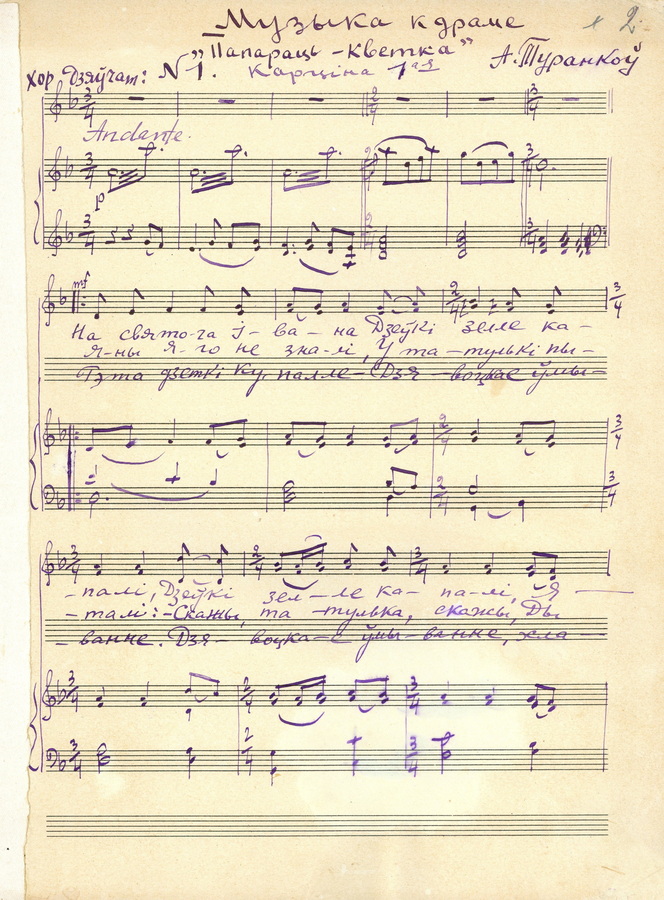 Музыка к драме
2.
„Папараць-кветка”
А. Туранкоў
Хор дзяўчат: N 1. Карціна 1ая
Andante.
p
mf
На свято-га І-ва-на Дзеўкі зелле ка-
Я-ны я-го не зна-лі, У та-тулькі пы-
Гэта дзеткі Ку палле- Дзя-воцкае ўмы-
-палі, Дзеўкі зел-ле ка-па-лі, Я
-талі:-Скажы, та-тулька, скажы, Ды
-ванне. Дзя-воцка-е ўмы-ванне, хла-